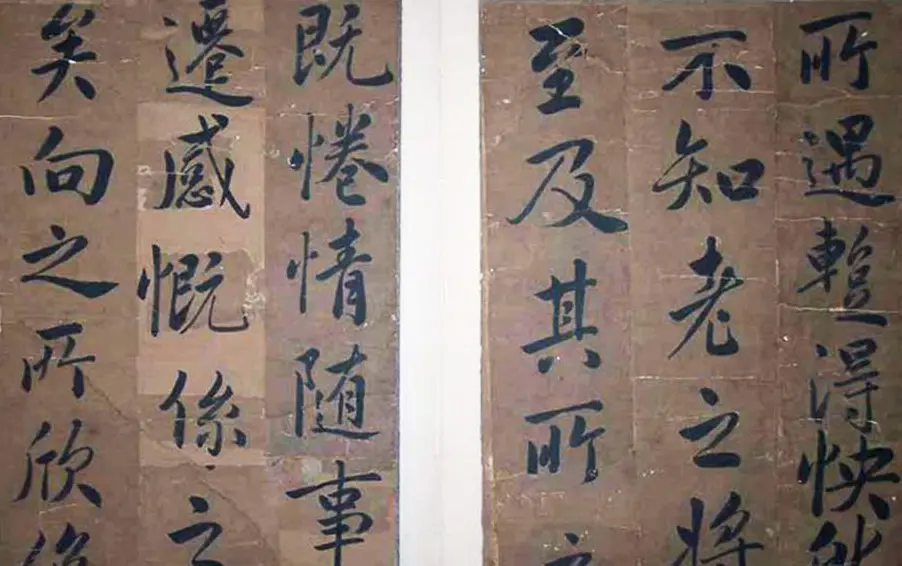 所遇暫得怏然
不知老之將
至及其所之
既惓情随事
遷感慨係之
矣向之所欣俛